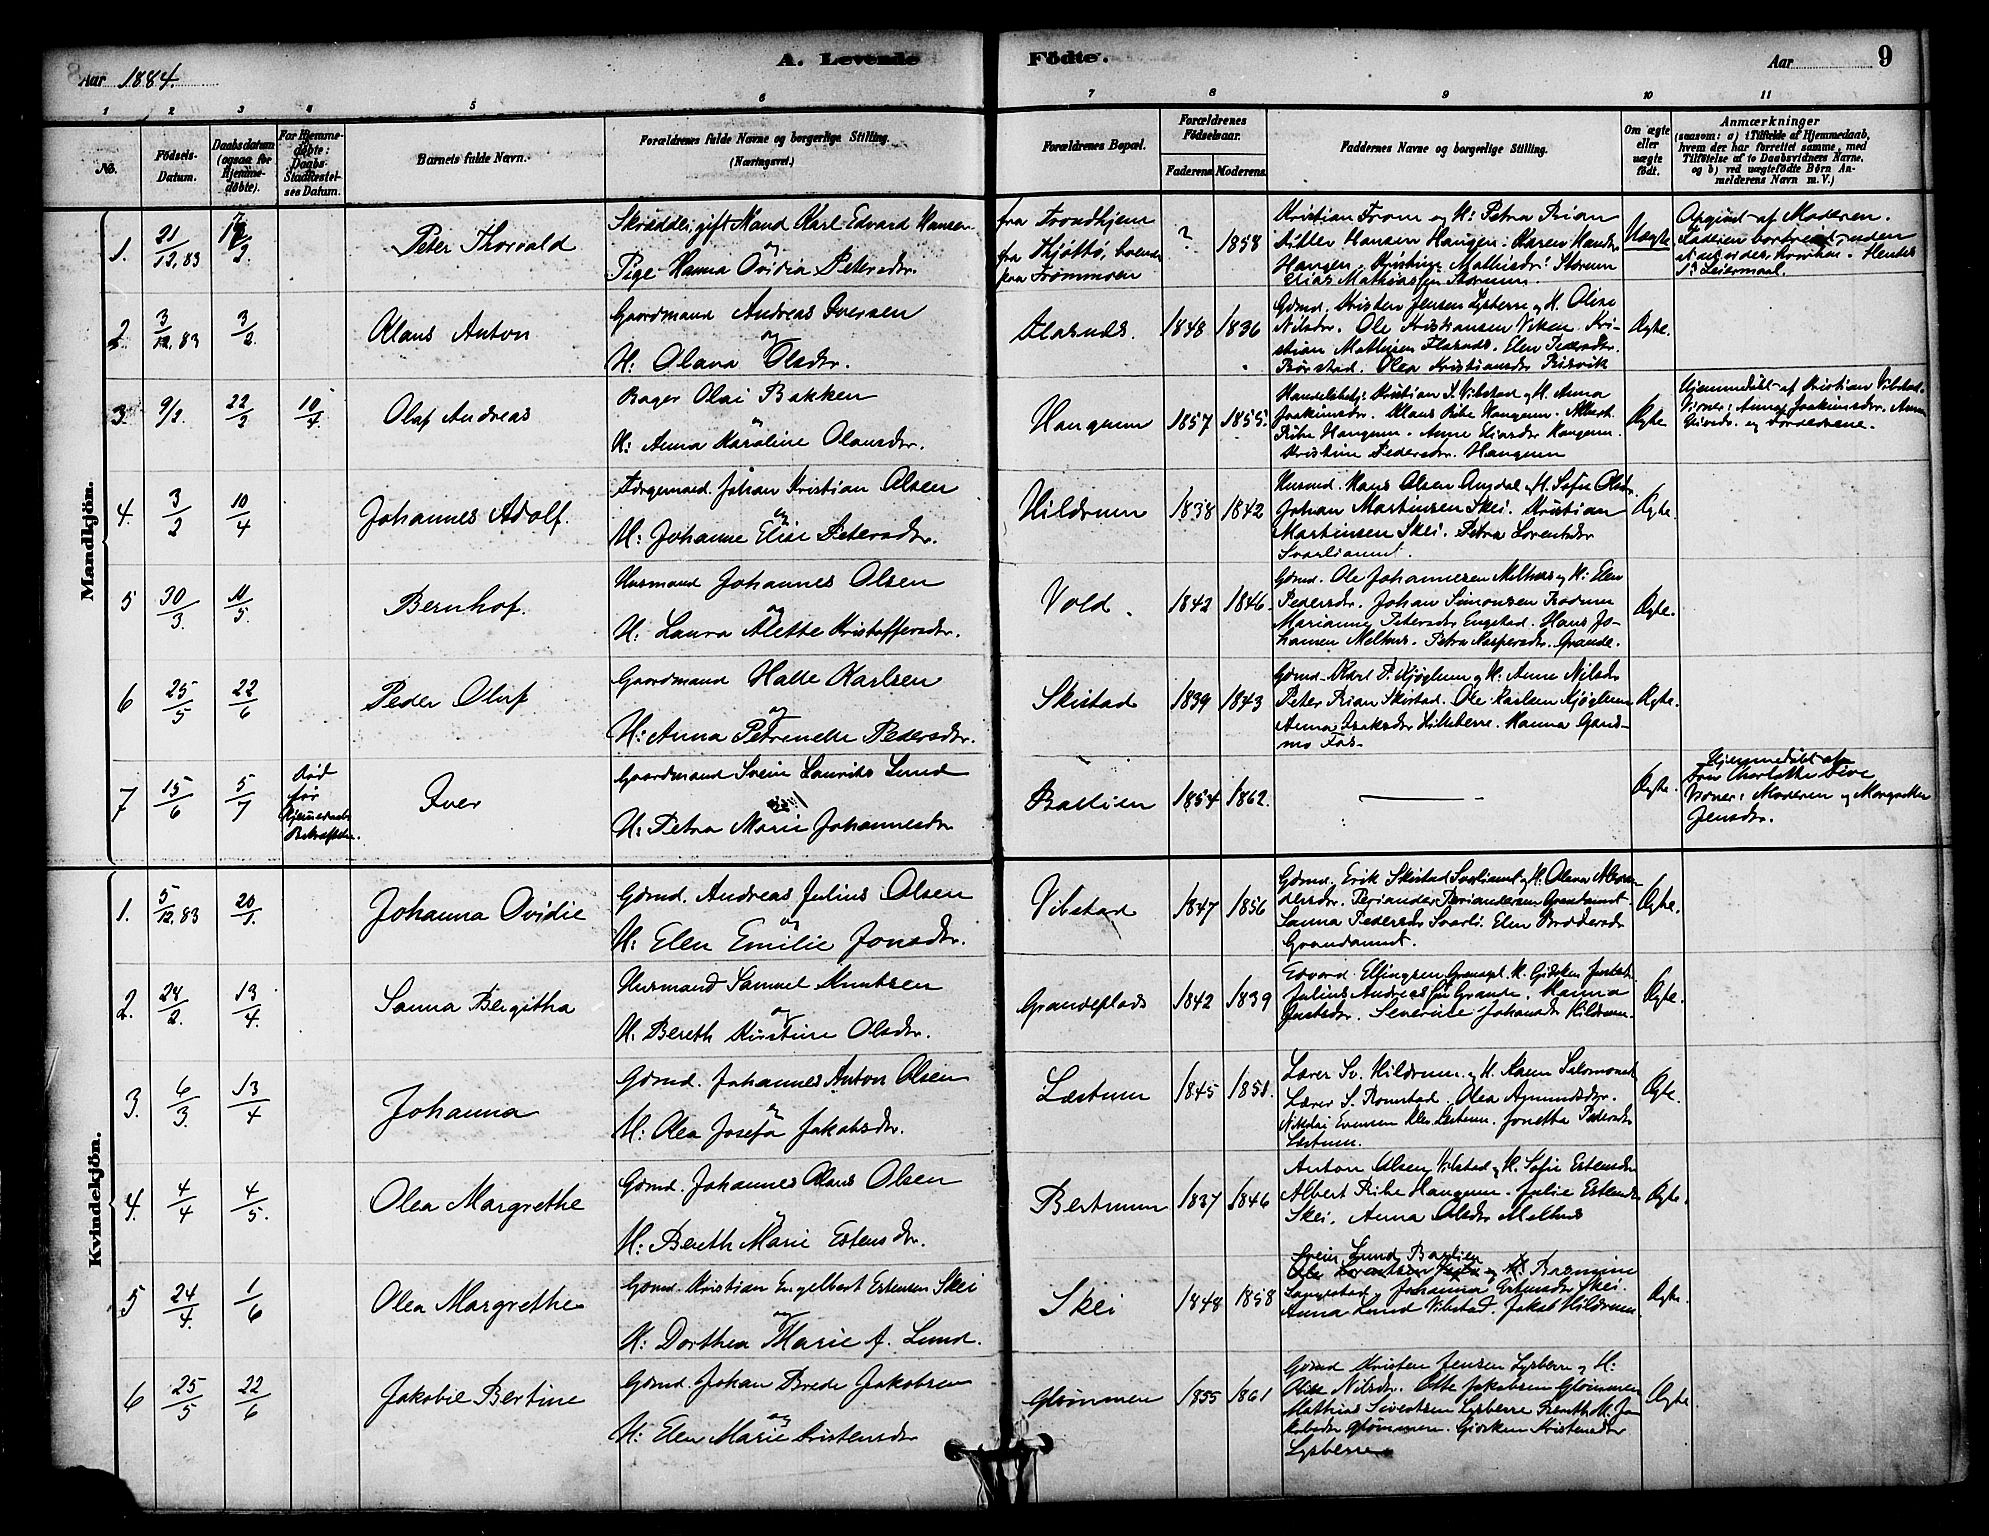 Aar 1884.
A. Levende Fødte.
Aar
9
1 2 3 4 5 6 7 8 9 10 11
No.
Fødsels-Datum.
Daabsdatum (ogsaa for Hjemme-døbte).
For Hjemme-døbte: Daabs-Stadfæstel-ses Datum.
Barnets fulde Navn.
Forældrenes fulde Navne og borgerlige Stilling. (Næringsvei.)
Forældrenes Bopæl.
Forældrenes Fødselsaar.
Faderens Moderens.
Faddernes Navne og borgerlige Stilling.
Om ægte eller uægte født.
Anmærkninger
(saasom: a) i Tilfælde af Hjemmedaab,
hvem der har forrettet samme, med
Tilføielse af to Daabsvidners Navne,
og b) ved uægtefødte Børn An-
melderens Navn m. V.)
Mandkjön.
1. 21/12.83 Peter Thorvald
Skrædder, gift Mand Karl Edvard Hansen
og
Pige Hanna Ovidia Petersdr.
fra Trondhjem
fra Thjøttø,
paa Trømmoen
? 1858
Kristian From og H: Petra Rian
Hansen Haugen. Karen Hansdr
Haugen. Mathisdr: Storum
Elias Mathiassen Storum.
Uægte
Opgivet af Moderen.
Faderen bortreist, uden
Lejermaal.
2. 3/12.83 3/2. Klaus Anton
Gaardmand Andreas Iversen
og
H: Olava Olsdr.
Flasnes. 1848 1836
Gdmd. Kristen Jensen Lysberre og H. Oline
Nilsdr. Ole Kristiansen Viken. Kri-
stian Mathisen Flasnes. Elen Pedersdr.
Børstad. Olea Kristiansdr Risvik
Ægte.
3. 9/2. 22/3 10/4 Olaf Andreas
Bager Olai Bakken
og
H: Anna Karoline Olausdr.
Haugum 1857 1855.
Kristian J. Vibstad og H. Anna
Joakimsdr. Klaus Ribe Haugum. Albert
Ribe Haugum. Anne Eliasdr Haugum.
Kristine Pedersdr. Haugum
Ægte
Hjemmedøbt af Kristian Vibstad.
Vidner: Anna Joakimsdr. Anne
og Forældrene.
4. 3/2 10/4 Johannes Adolf.
Færgemand. Johan Kristian Olsen
og
H: Johanne Elise Petersdr.
Hildrum 1838 1842
Husmd. Hans Olsen Amdal og H. Sofie Olsdr
Johan Martinsen Skei. Kristian
Martinsen Skei. Petra Lorentsdr
Svarliaunet.
Ægte.
5 30/3. 11/5. Bernhof.
Husmand Johannes Olsen
og
H: Laura Alette Kristoffersdr.
Vold. 1842 1846.
Gdmd. Ole Johannesen Melhus og H: Elen
Pedersdr. Johan Simonsen
Marianne Petersdr Engstad. Hans Jo-
hansen Melhus. Petra Kaspersdr. Grande.
Ægte.
6 25/5 22/6 Peder Oluf
Gaardmand Halle Karlsen
og
H: Anna Petrinelle Pedersdr.
Skistad 1839 1843
Gdmd. Karl P. Kjøglum og H: Anne Nilsdr
Peter Rian Skistad. Ole Karlsen Kjøglum
Anna Isaksdr Lilleberre. Hanna Gans-
mo Fos.
Ægte.
7 15/6 5/7
Død
før
Hjemmedaabs
Bekræftelse.
Iver
Gaardmand Svein Laurits Lund
og
H: Petra Marie Johannesdr
Bastien 1854 1862.
Ægte.
Hjemmedøbt af
Fru Charlotte
Vidner: Moderen og Margrethe
Jensdr.
Kvindekjön.
1. 5/12.83 20/1. Johanna Ovidie
Gdmd. Andreas Julius Olsen
og
H: Elen Emilie Jonsdr.
Vibstad 1847 1856
Gdmd. Erik Skistad Svarliaunet og H. Olava
Periander Periandersen Grandaunet
Sanna Pedersdr Svarli. Elen Brødersdr
Grandaunet.
Ægte.
2. 24/2. 13/4. Sanna Bergitha
Husmand Samuel Knutsen
og
H: Bereth Kirstine Olsdr.
Grandeplads 1842 1839
Edvard Elfingsen og H. Gjørken Justsdr.
Julius Andreassen Grande. Hanna
Justsdr. Severine Johansdr Hildrum.
Ægte.
3. 6/3. 13/4 Johanna
Gdmd. Johannes Anton Olsen
og
H: Olea Josefa Jakobsdr.
Læstum 1845 1851.
Lærer Sv. Hildrum og H. Karen Salomonsdr.
Lærer S. Romstad. Olea Amundsdr.
Nikolai Evensen Læstum. Jonetta Pedersdr
Læstum.
Ægte.
4. 4/4 4/5. Olea Margrethe
Gdmd. Johannes Klaus Olsen
og
H: Bereth Marie Estensdr.
Bertnem 1837 1846
Anton Olsen Vibstad og H. Sofie Estensdr
Albert Ribe Haugum. Julie Estensdr
Skei. Anna Olsdr Melhus
Ægte.
5 24/4. 1/6 Olea Margrethe
Gdmd. Kristian Engelbert Estensen Skei
og
H: Dorthea Marie J. Lund.
Skei 1848 1858
Svein Lund Bastien
og H. Basmine
Johanna Estensdr Skei.
Anna Lund Vibstad. Jakob Hildrum
Ægte.
6 25/5 22/6 Jakobie Bertine
Gdmd. Johan Brede Jakobsen
og
H: Elen Marie Kristensdr
Glømmen 1855 1861
Gdmd Kristen Jensen Lysberre og H:
Olise Nilsdr. Otte Jakobsen Glømmen
Mathias Sivertsen Lysberre Bereth M. Ja-
kobsdr Glømmen. Gjørken Kristensdr
Lysberre
Ægte